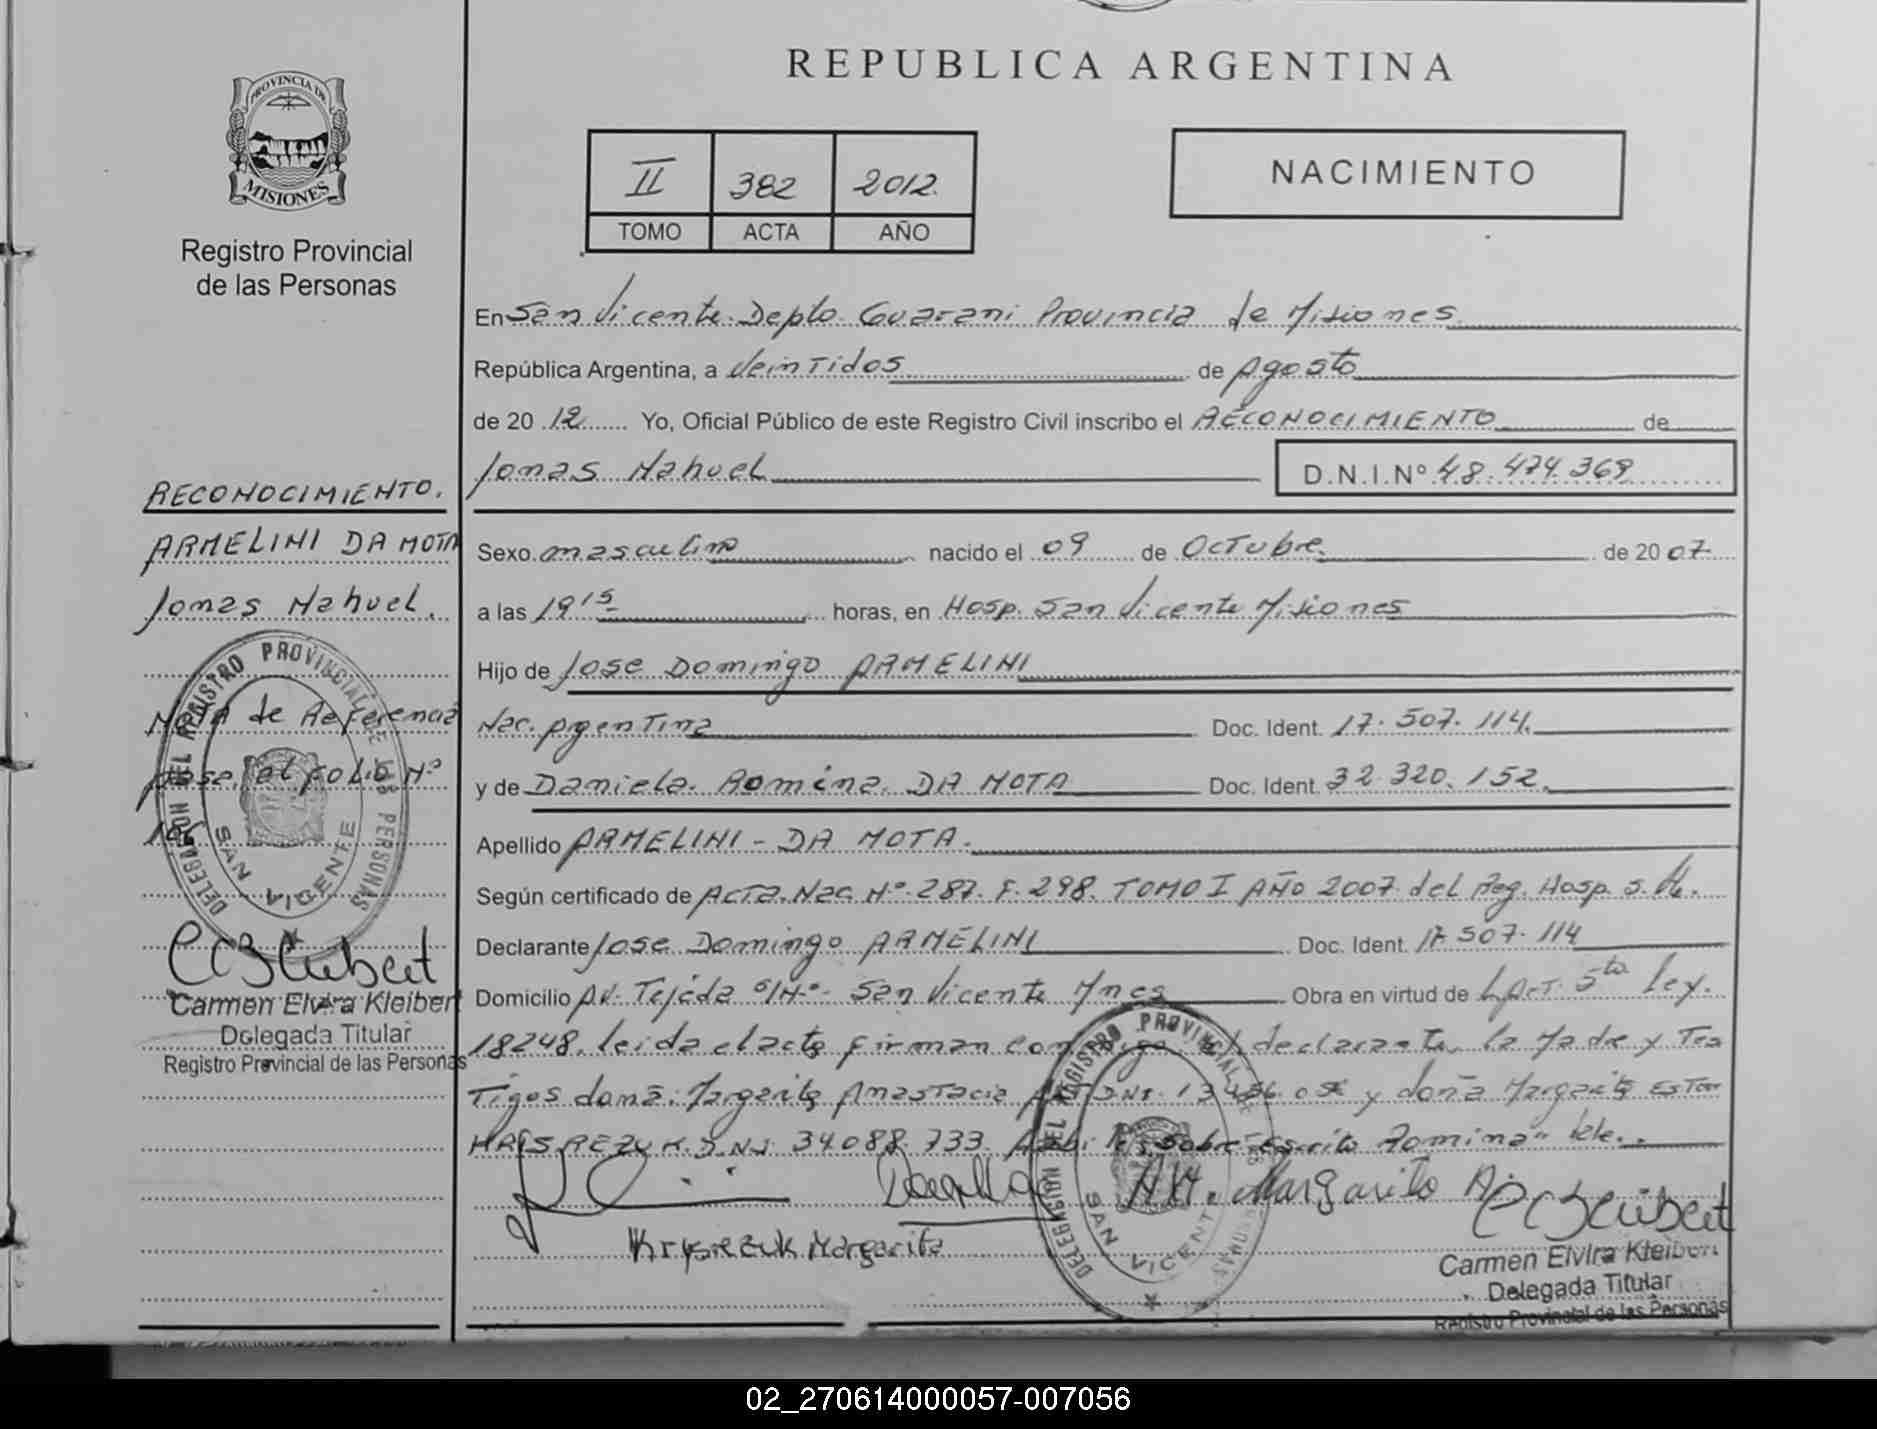 REPUBLICA ARGENTINA
PROVINCIA DE
MISIONES
Registro Provincial
de las Personas
II 382 2012
TOMO ACTA AÑO
NACIMIENTO
En San Vicente Depto Guarani Provincia de Misiones
República Argentina, a Veintidos de Agosto
de 20 12 Yo, Oficial Público de este Registro Civil inscribo el RECONOCIMIENTO de
Jonas Nahuel D.N.I.Nº 48.474.369
RECONOCIMIENTO.
ARMELINI DA MOTA
Jonas Nahuel.
Nota de Referencia
pasa al folio Nº
Sexo masculino nacido el 09 de Octubre de 2007
a las 19 15 horas, en Hosp. San Vicente Misiones
Hijo de Jose Domingo ARMELINI
Nac. Argentina Doc. Ident. 17.507.114.
y de Daniela Romina DA MOTA Doc. Ident. 32.320.152.
Apellido ARMELINI - DA MOTA.
Según certificado de Acta. Nac. Nº 287. F. 298. TOMO I AÑO 2007 del Reg. Hosp. S.
Declarante Jose Domingo ARMELINI Doc. Ident. 17.507.114
Domicilio Av. Tejeda S/Nº San Vicente Mnes Obra en virtud de Art. 5to Ley.
18248. leida el acta firman declarante, la Madre y Tes
Tigos doña Margarita Anastacia y doña Margarita
34.088.733. sobre Escrito Romina" Vale.
Margarita A.
Krysiezuk Margarita
DELEGACION DEL REGISTRO PROVINCIAL DE LAS PERSONAS
SAN VICENTE
C E Kleibert
Carmen Elvira Kleibert
Delegada Titular
Registro Provincial de las Personas
DELEGACION DEL REGISTRO PROVINCIAL DE LAS PERSONAS
SAN VICENTE
C E Kleibert
Carmen Elvira Kleibert
Delegada Titular
Registro Provincial de las Personas
02_270614000057-007056